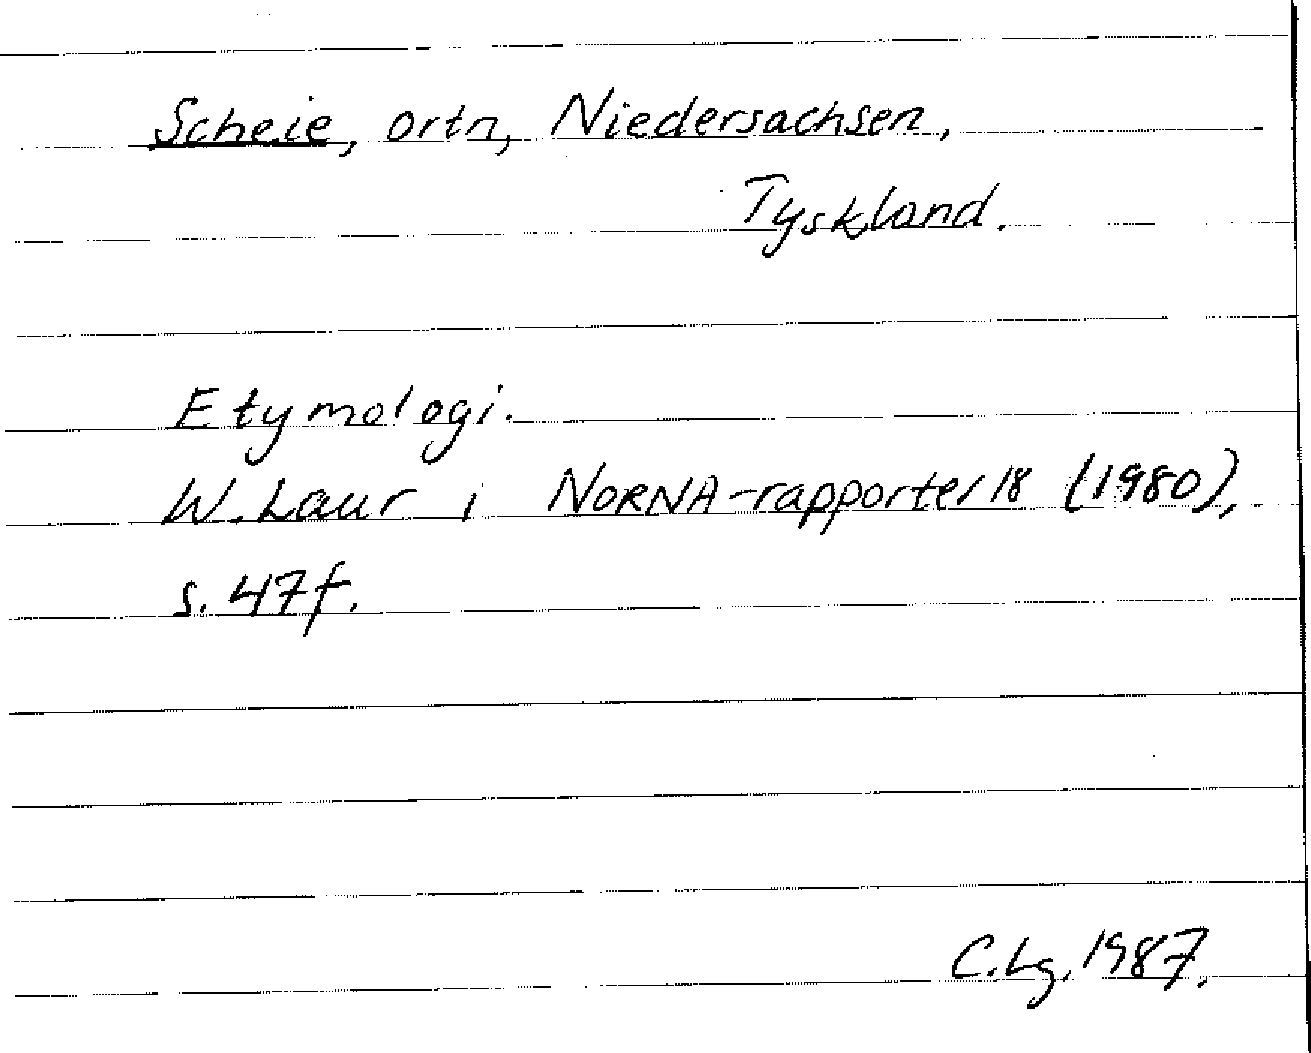 Scheie, ortn, Niedersachsen,
Tyskland.
Etymologi.
W. Laur i NORNA-rapporter 18 (1980),
s. 47f.
C. Lg. 1987.